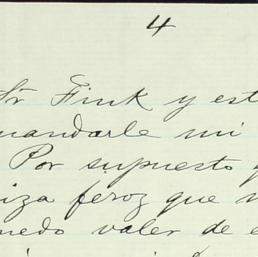 4
Sr Fink y est
mandarle mi
Por supuesto
iza feroz que
uedo valer de e